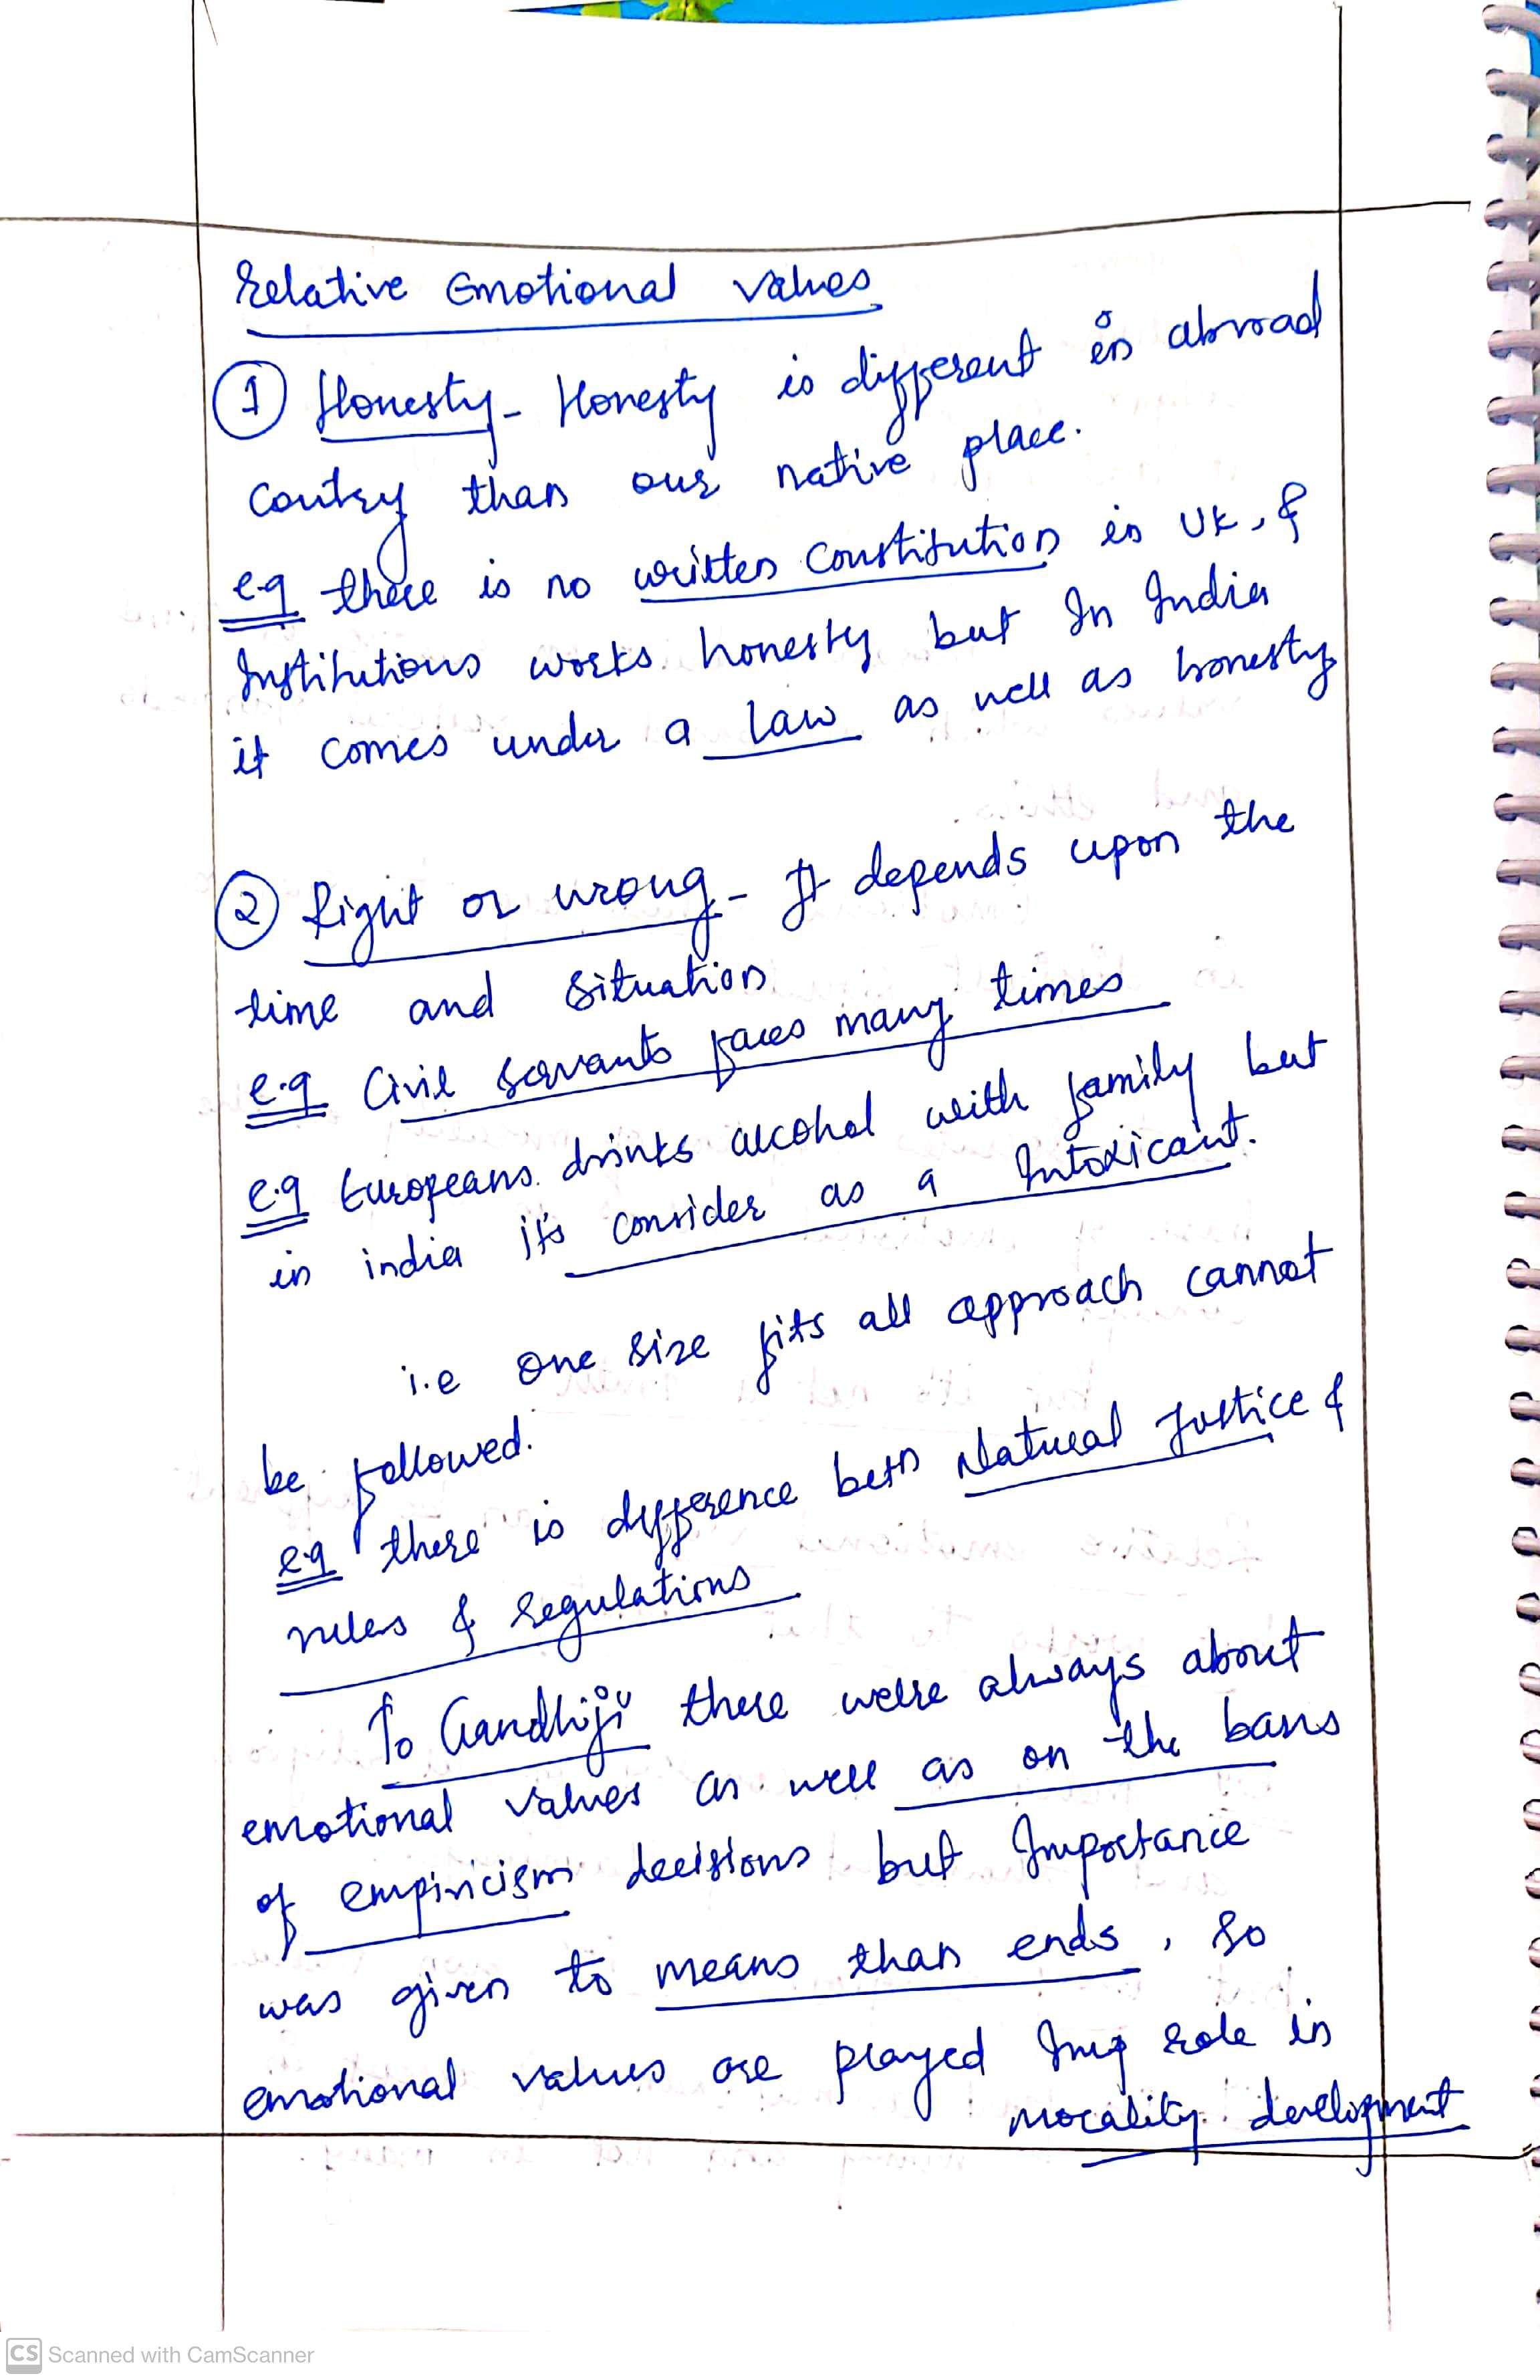 Relative Emotional values
① Honesty - Honesty is different in abroad
Coutry than our native place.
e.g there is no written Constitution in UK, &
Institutions works honesty but In India
it comes under a law as well as honesty
② Right or wrong - It depends upon the
time and situation
e.g Civil servants faces many times
e.g Europeans drinks alcohol with family but
in india it's consider as a Intoxicant.
i.e one size fits all approach cannot
be followed.
e.g there is difference betn Natural Justice &
rules & regulations
To Gandhiji there were always about
emotional values as well as on the basis
of empiricism decisions but Importance
was given to means than ends, so
emotional values are played Imp role in
morality development
CS Scanned with CamScanner